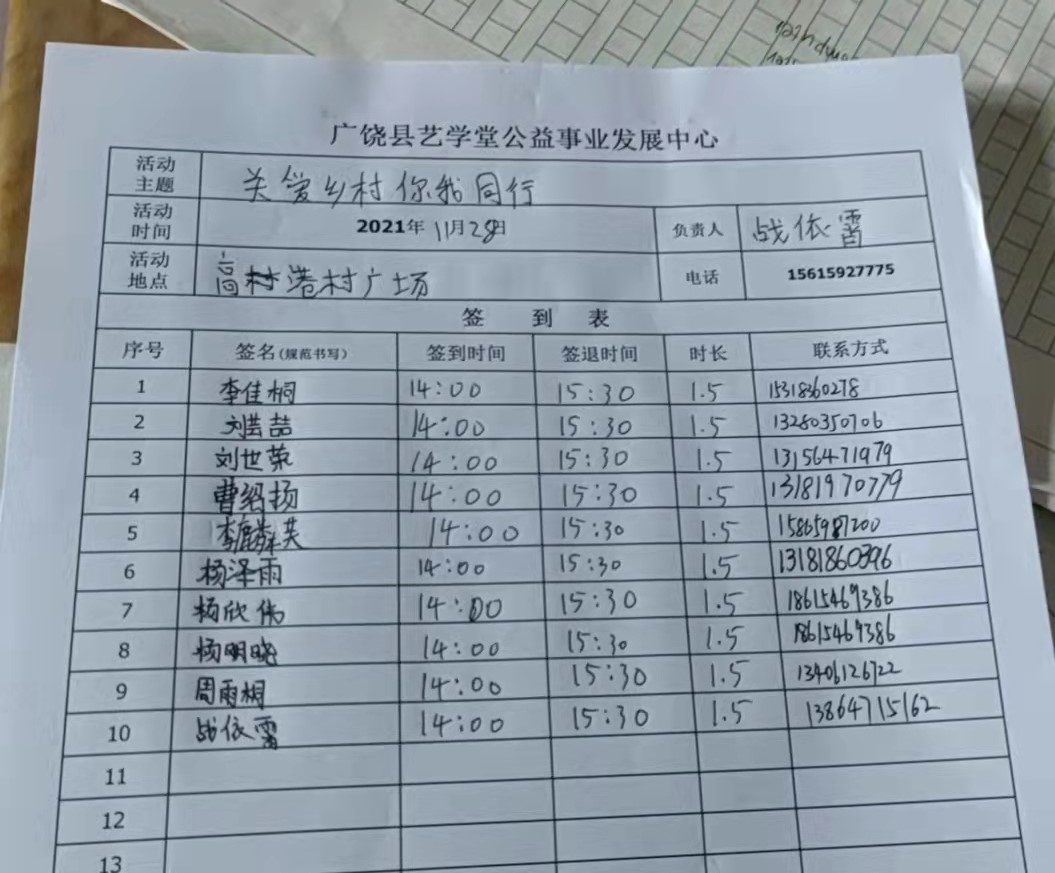 广饶县艺学堂公益事业发展中心
活动主题 关爱乡村你我同行
活动时间 2021年11月28日 负责人 战依雷
活动地点 高港村广场 电话 15615927775
签到表
序号 签名(规范书写) 签到时间 签退时间 时长 联系方式
1 李佳桐 14:00 15:30 1.5 15318360278
2 刘喆 14:00 15:30 1.5 13280350706
3 刘世荣 14:00 15:30 1.5 13156471979
4 曹绍扬 14:00 15:30 1.5 13181970779
5 李麟 14:00 15:30 1.5 15865987200
6 杨泽雨 14:00 15:30 1.5 13181860396
7 杨欣伟 14:00 15:30 1.5 18615469386
8 杨明晓 14:00 15:30 1.5 18615469386
9 周雨桐 14:00 15:30 1.5 13406126722
10 战依雷 14:00 15:30 1.5 13864715162
11
12
13